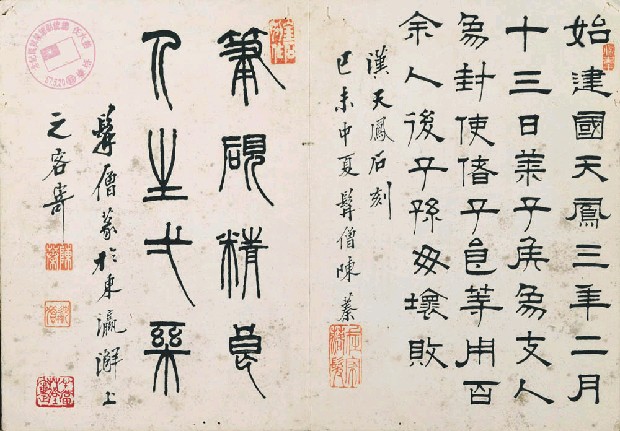 始建國天鳳三年二月
十三日萊子矦為支人
為封使偖子良等用百
余人後子孫毋壞敗
漢天鳳石刻
己未中夏髯僧陳
筆硯精良
人生弌樂
髯僧篆於東瀛澥上
之客寄